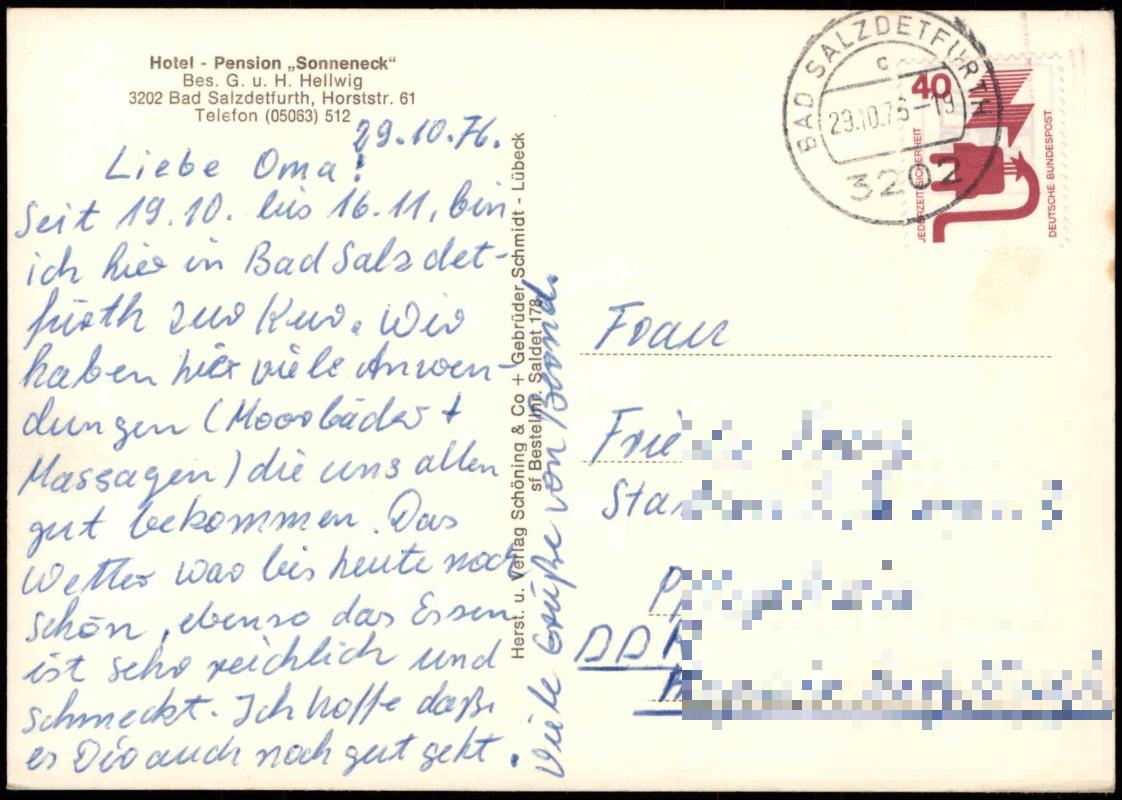 Hotel - Pension „Sonneneck“
Bes. G. u. H. Hellwig
3202 Bad Salzdetfurth, Horststr. 61
Telefon (05063) 512
29.10.76.
Liebe Oma!
Seit 19.10. bis 16.11. bin
ich hier in Bad Salzdet-
furth zur Kur. Wir
haben hier viele Anwen-
dungen (Moorbäder +
Massagen) die uns allen
gut bekommen. Das
Wetter war bis heute noch
schön, ebenso das Essen
ist sehr reichlich und
schmeckt. Ich hoffe daß
es Dir auch noch gut geht.
Viele Grüße von Bernd.
Herst. u. Verlag Schöning & Co + Gebrüder Schmidt - Lübeck
sf Bestellnr. Saldet 178
BAD SALZDETFURTH
c
29.10.76-19
3202
40
JEDERZEIT SICHERHEIT
DEUTSCHE BUNDESPOST
Frau
DDR